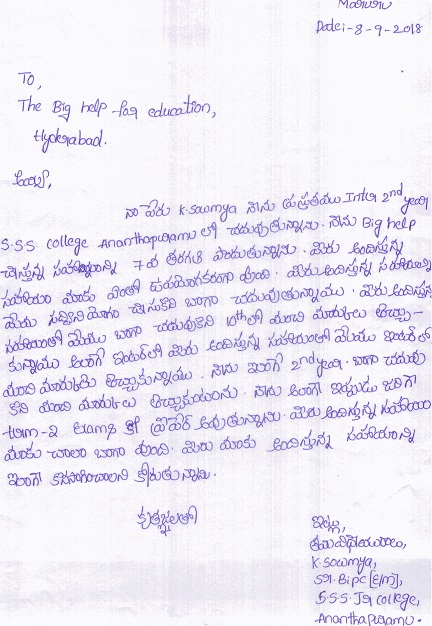 Maruru
Date:- 8-9-2018
To,
The Big help for education,
Hyderabad.
అయ్యా,
నా పేరు K.sowmya నేను ప్రస్తుతము Inter 2nd year
S.S.S. college Ananthapuramu లో చదువుతున్నాను. నేను Big help
చేస్తున్న సహాయాన్ని 7వ తరగతి పొందుతున్నాను. మీరు అందిస్తున్న
సహాయం మాకు ఎంతో ఉపయోగకరంగా ఉంది. మీరు అందిస్తున్న సహాయాన్ని
మేము సద్వినియోగం చేసుకొని బాగా చదువుతున్నాము. మీరు అందిస్తున్న
సహాయంతో మేము బాగా చదువుకొని 10thలో మంచి మార్కులు తెచ్చు-
కున్నాము అలాగే ఇంటర్‌లో మీరు అందిస్తున్న సహాయంతో మేము ఇంటర్ లో
మంచి మార్కులు తెచ్చుకున్నాము. నేను ఇంకా 2nd year. బాగా చదువు
కొని మంచి మార్కులు తెచ్చుకుంటాను. నేను అలాగే ఇప్పుడు జరిగే
term-2 Exams కి ప్రిపేర్ అవుతున్నాను. మీరు అందిస్తున్న సహాయం
మాకు చాలా బాగా ఉంది. మీరు మాకు అందిస్తున్న సహాయాన్ని
ఇలాగే కొనసాగించాలని కోరుతున్నాను.
కృతజ్ఞతలతో
ఇట్లు,
తమ విధేయురాలు,
K.sowmya,
SR. Bipc [E/M],
S.S.S. JR college,
Ananthapuramu.